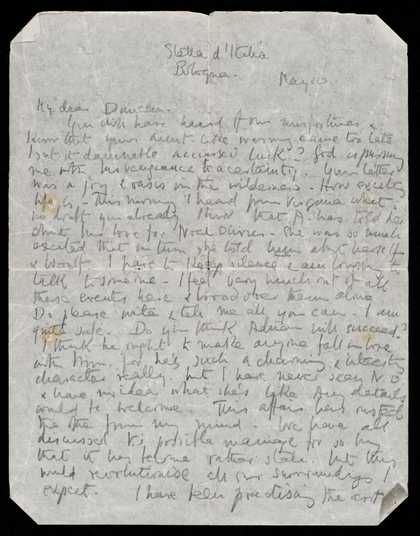 Stella d'Italia
Bologna.
May 10
My dear Duncan.
You will have heard of our misfortunes &
know that your letter like warning came too late.
Isn't it damnable accursed luck? God is pursuing
me with his vengeance to a certainty. Your letter
was a joy & oasis in the wilderness. How exciting
life is. This morning I heard from Virginia what
no doubt you already know that A. has told her
about his love for Noel Olivier. She was so much
excited that in turn she told him about herself
& Woolf. I have to keep silence & am longing to
talk to someone. I feel very much out of all
these events here & brood over them alone
Do please write & tell me all you can. I am
quite safe. Do you think Adrian will succeed?
I think he ought to make anyone fall in love
with him, for he's such a charming & interesting
character really, but I have never seen N.O.
& have no idea what she's like. Any details
would be welcome. This affair has
the other from my mind. We have all
discussed V's possible marriage for so long
that it has become rather stale. but this
would revolutionise all our surroundings I
expect. I have been practising the art